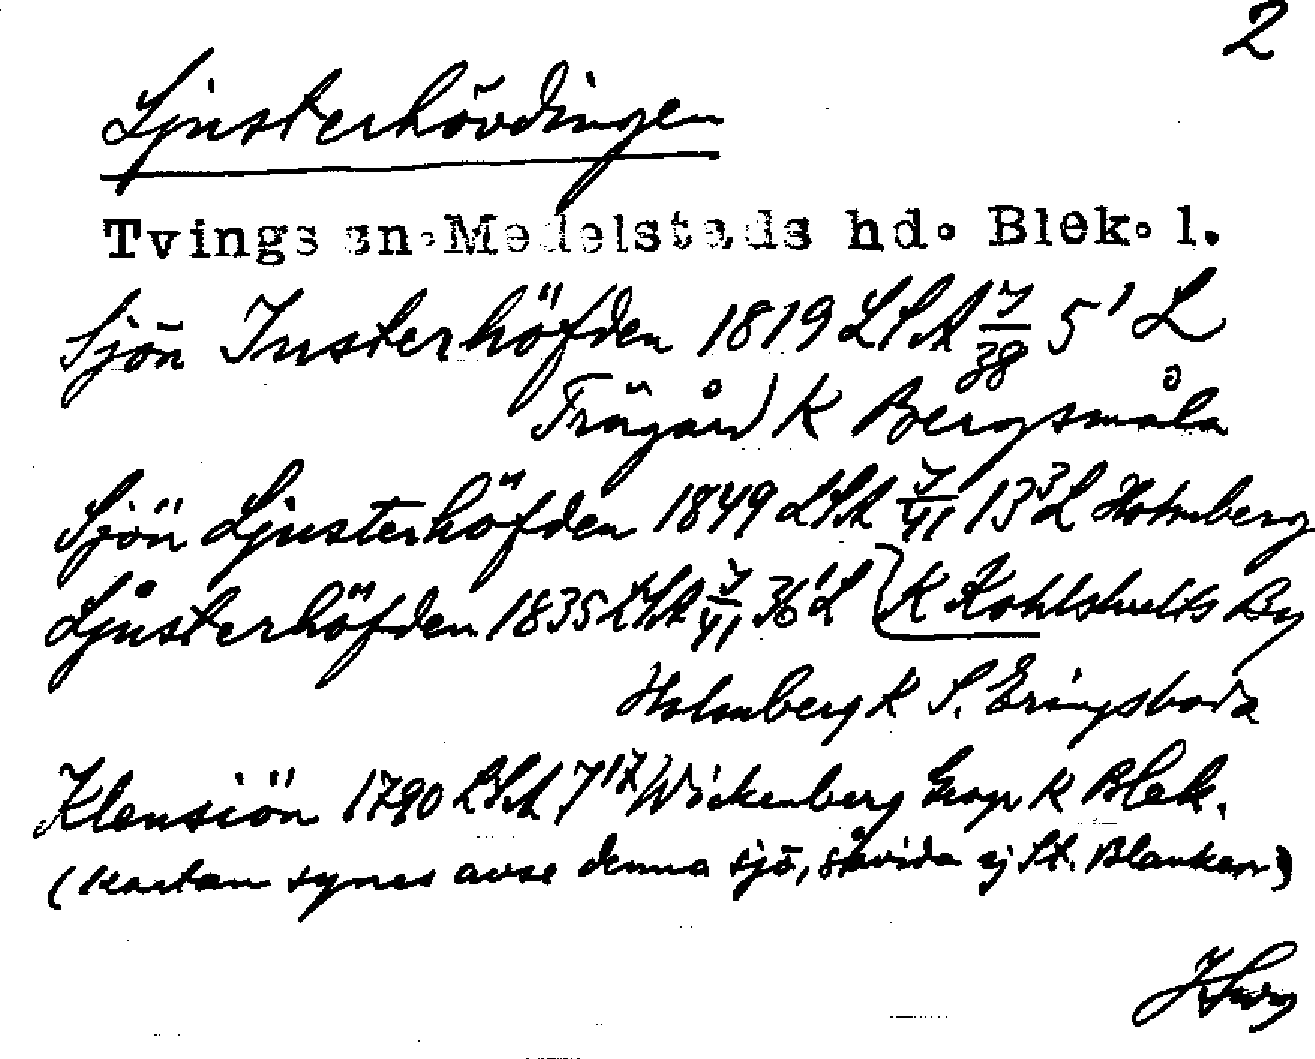 2
Ljusterhövdingen
Tvings sn. Medelstads hd. Blek. l.
Sjön Justerhöfden 1819 LSA J/38 5¹ L
Trägård) K Bergsmåla
Sjön Ljusterhöfden 1849 LSA J/41 13³ L Holmberg
Ljusterhöfden 1835 LSA J/41 36¹ L K Kohlshults By
Holmberg K S. Eringsboda
Klensiön 1790 LSA J 17 Wickenberg Geogr K Blek.
(Kartan synes avse denna sjö, såvida ej St. Blanken)